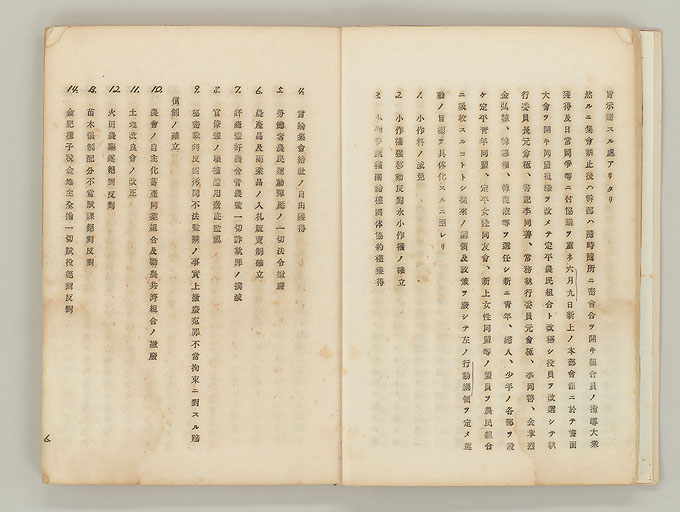 旨示達スル處アリタリ
然ルニ集會禁止後ハ幹部ハ隨時隨所ニ密會合ヲ開キ組合員ノ指導大衆
獲得及日常鬪爭等ニ付協議ヲ重ネ六月九日新上ノ本部會館ニ於テ書面
大會ヲ開キ同盟組織ヲ改メテ定平農民組合ト改稱シ役員ヲ改選シテ執
行委員長元會極、書記李同善、常務執行委員元會極、李同善、金
金弘 、韓 、韓 ヲ選任シ新ニ青年、婦人、少年ノ各部ヲ設
ケ定平青年同盟、定平女性同友會、新上女性同盟等ノ盟員ヲ農民組合
ニ吸收スルコトトシ從來ノ綱領及政策ヲ廢シテ左ノ行動綱領ヲ定メ運
動ノ目標ヲ具体化スルニ至レリ
1. 小作料ノ減免
2. 小作權强移動反對永小作權ノ確立
3. 小作爭議權團結權團体協約權獲得
4. 言論集會結社ノ自由獲得
5. 勞働者農民運動彈壓ノ一切法令撤廢
6. 農產品及商業品ノ入札販賣制確立
7. 奸商 奸農舍音農監一切詐欺罪ノ撲滅
8. 官僚輩ノ職權濫用徹底監視
9. 秘密裁判反對拷問不法監禁ノ事實上撤廢寃罪不當拘束ニ對スル賠
償制ノ確立
10. 農會ノ自主化畜產同業組合及勸農共濟組合ノ撤廢
11. 土地改良會ノ改正
12. 火田農驅逐絕對反對
13. 苗木强制配分不當賦課絕對反對
14. 金肥種子稅金地主全擔一切賦役絕對反對
6